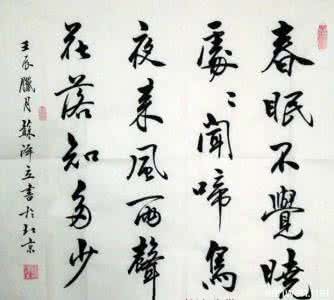 春眠不覺曉
處〻聞啼鳥
夜来風雨聲
花落知多少
壬辰臘月蘇澤立書於北京